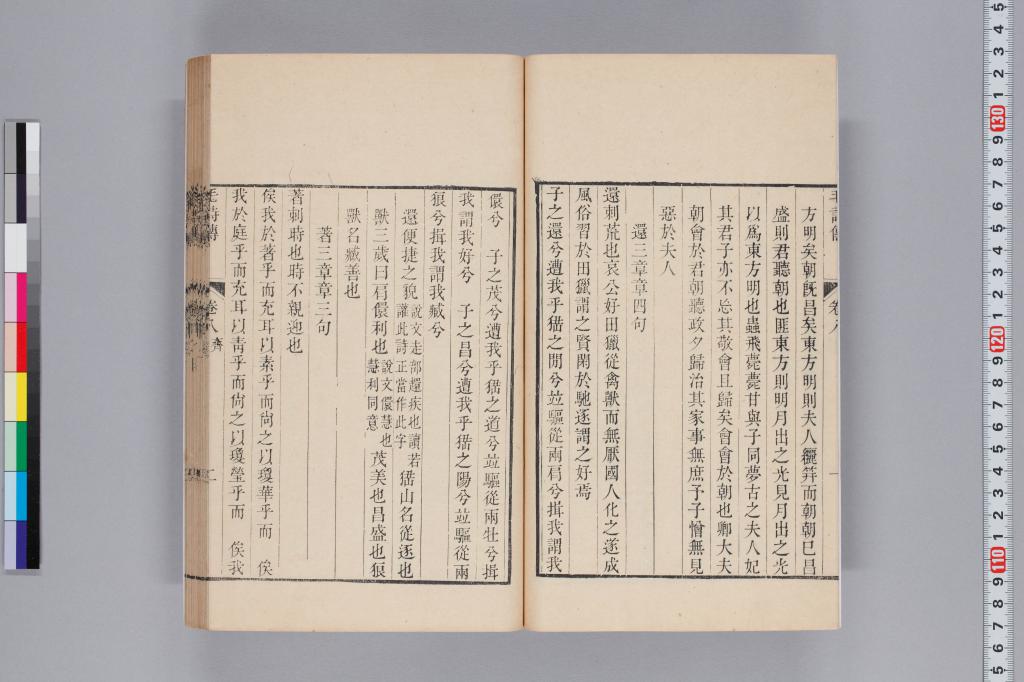 方明矣朝旣昌矣東方明則夫人纚笄而朝朝巳昌
盛則君聽朝也匪東方則明月出之光見月出之光
以爲東方明也蟲飛薨薨甘與子同夢古之夫人妃
其君子亦不忘其敬會且歸矣會會於朝也卿大夫
朝會於君朝聽政夕歸治其家事無庶予子憎無見
惡於夫人
還三章章四句
還刺荒也哀公好田獵從禽獸而無厭國人化之遂成
風俗習於田獵謂之賢閑於馳逐謂之好焉
子之還兮遭我乎峱之閒兮竝驅從兩肩兮揖我謂我
儇兮　子之茂兮遭我乎峱之道兮竝驅從兩牡兮揖
我謂我好兮　子之昌兮遭我乎峱之陽兮竝驅從兩
狼兮揖我謂我臧兮
還便捷之貌說文走部還疾也讀若讙此詩正當作此字峱山名從逐也
獸三歲曰肩儇利也說文儇慧也慧利同意茂美也昌盛也狼
獸名臧善也
著三章章三句
著刺時也時不親迎也
俟我於著乎而充耳以素乎而尙之以瓊華乎而　俟
我於庭乎而充耳以靑乎而尙之以瓊瑩乎而　俟我
毛詩傳
卷八齊